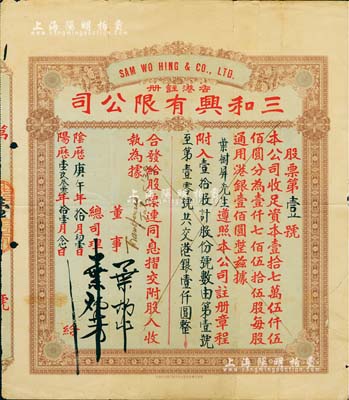 上海陽明拍賣
SAM WO HING & CO., LTD.
香港註册
三和興有限公司
股票第壹號
本公司收足資本壹拾七萬伍仟伍
佰圓分為壹仟七佰伍拾伍股每股
通用港銀壹佰圓整兹據
葉樹屏先生遵照本公司註册章程
附入壹拾股計股份號數由第壹號
至第壹零號共交港銀壹仟圓整
合發給股票連同息摺交附股人收
執為據
董事
總司理
陰歷庚午年拾月初壹日
陽歷壹玖叁零年拾壹月念日
給
上海陽明拍賣